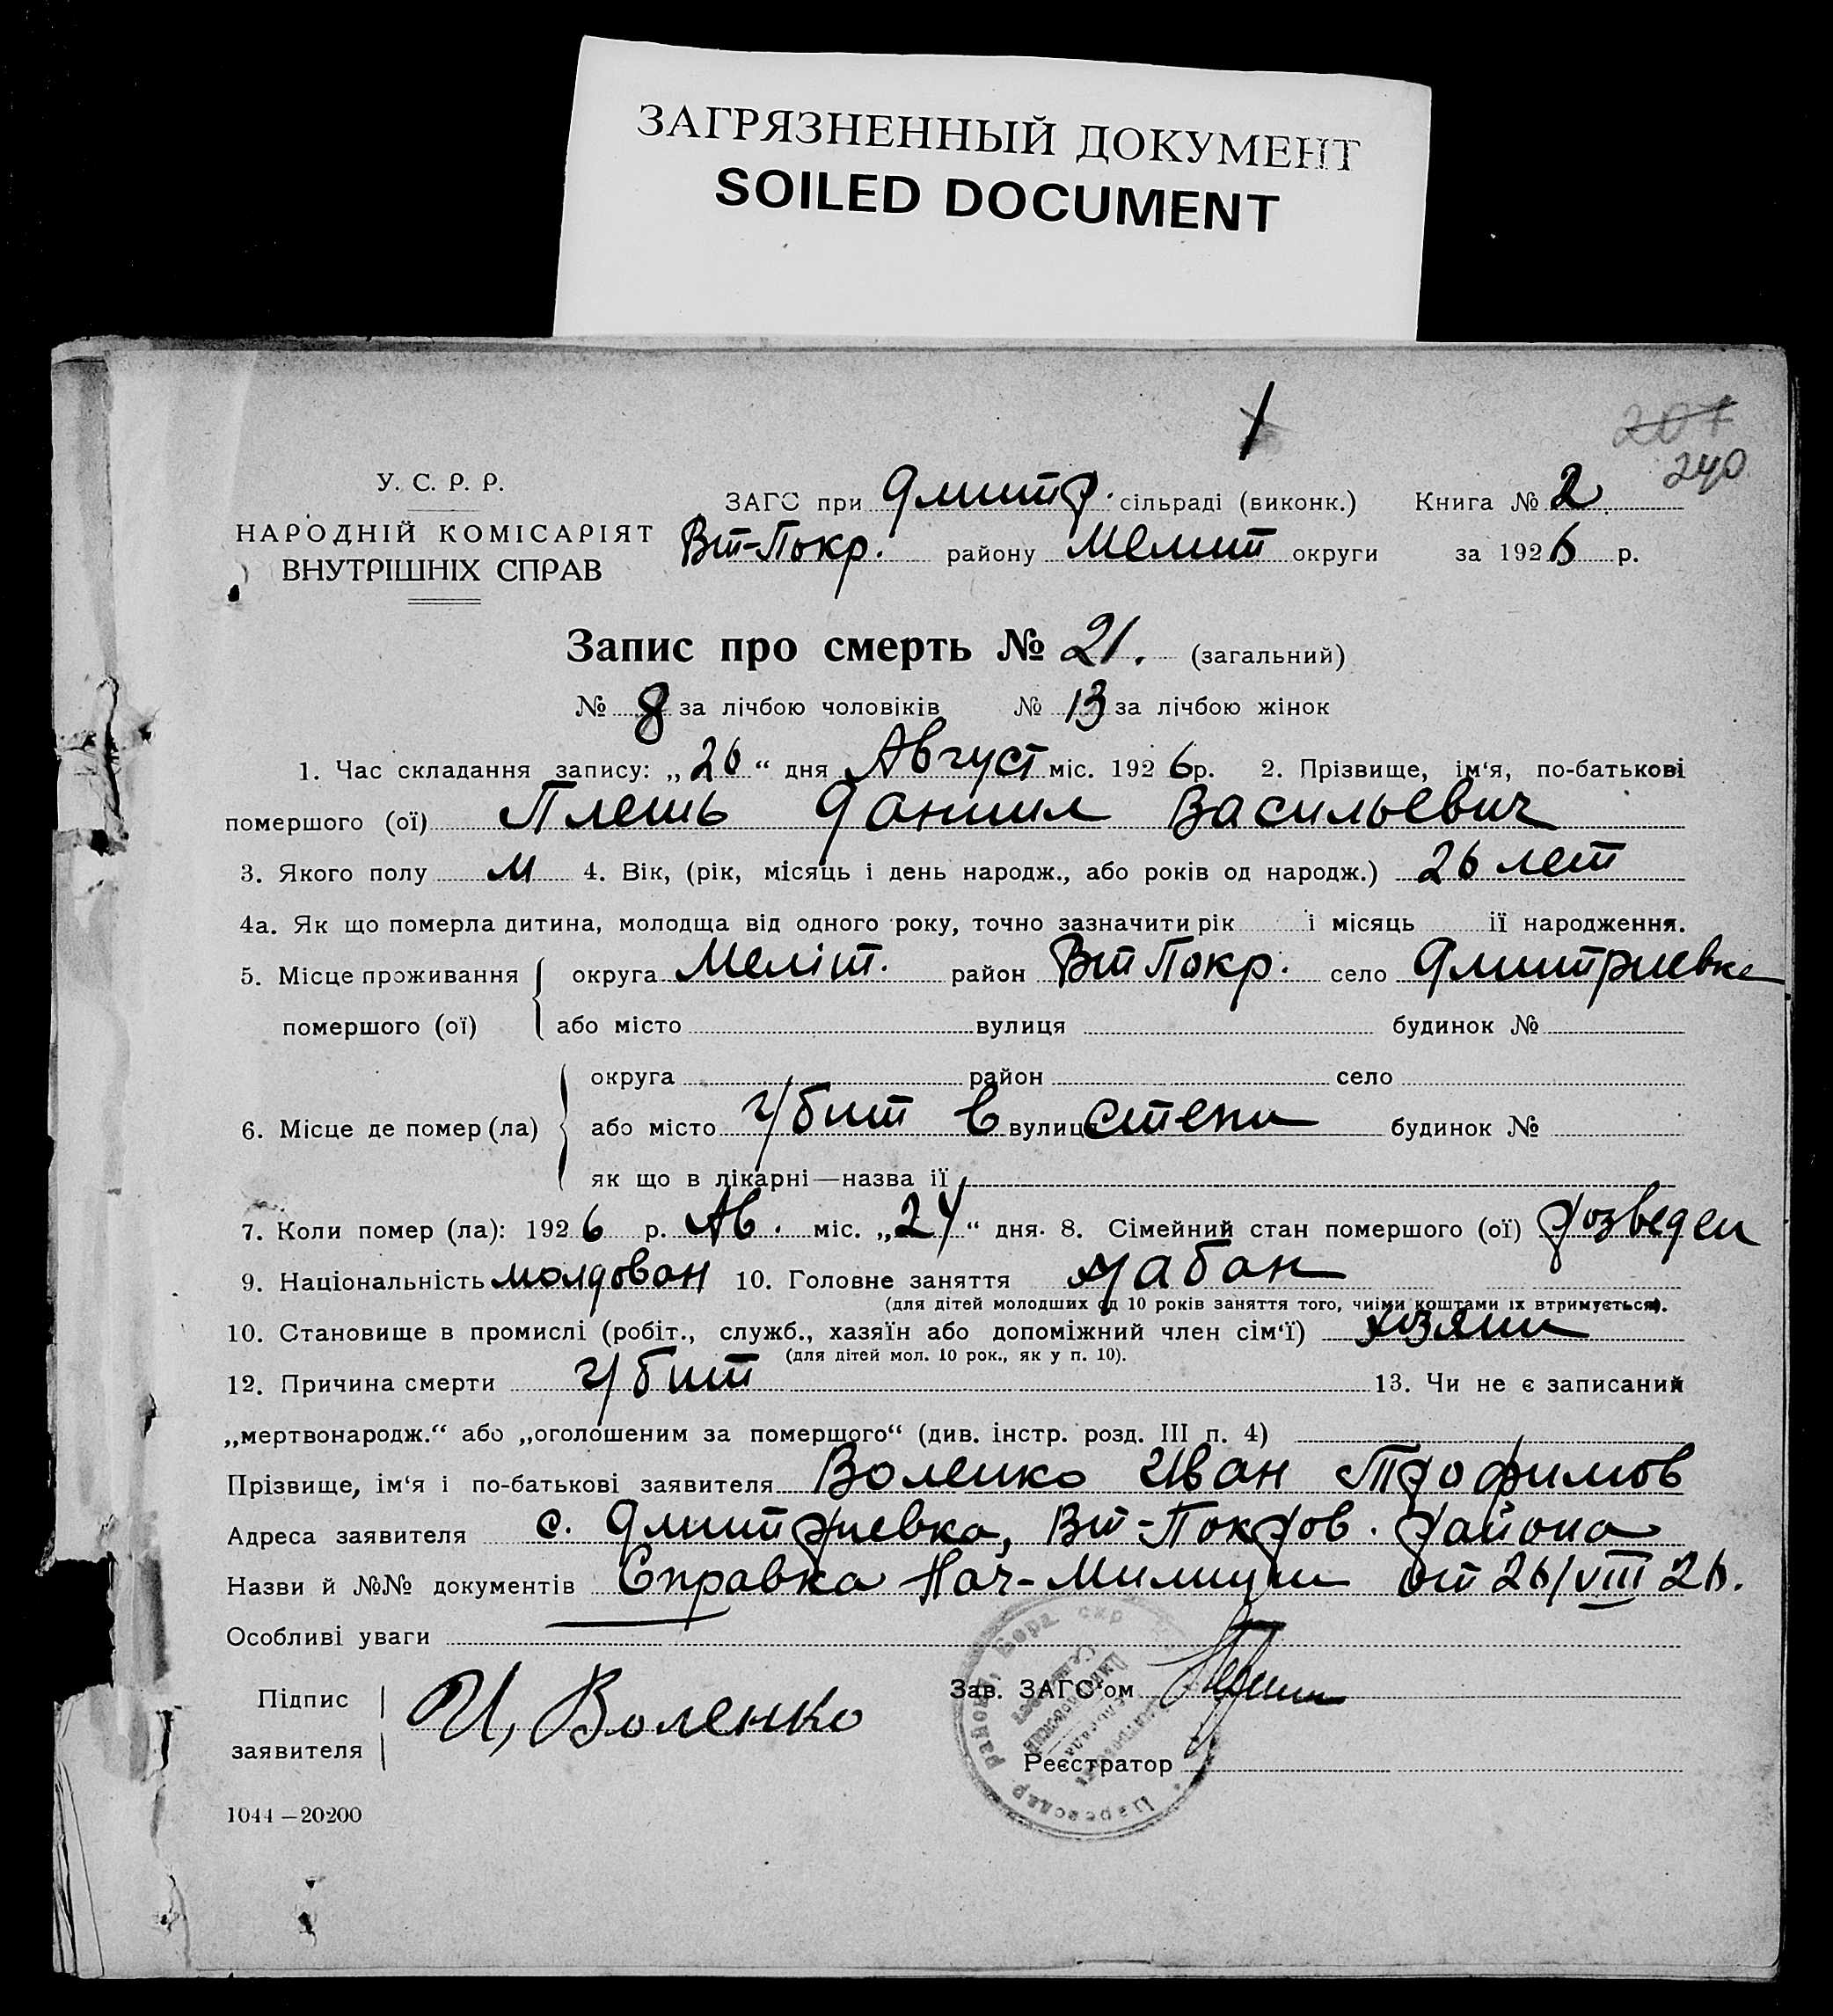 ЗАГРЯЗНЕННЫЙ ДОКУМЕНТ
SOILED DOCUMENT
207
240
У. С. Р. Р.
НАРОДНІЙ КОМІСАРІЯТ
ВНУТРІШНІХ СПРАВ
ЗАГС при Дмитр. сільраді (виконк.) Книга № 2
Вт-Покр. району Мелит округи за 1926 р.
Запис про смерть № 21. (загальний)
№ 8 за лічбою чоловіків № 13 за лічбою жінок
1. Час складання запису: „26“ дня Август міс. 1926 р. 2. Прізвище, ім‘я, по-батькові
помершого (ої) Плешь Даниил Васильевич
3. Якого полу М 4. Вік, (рік, місяць і день народж., або років од народж.) 26 лет
4а. Як що померла дитина, молодща від одного року, точно зазначити рік і місяць ії народження.
5. Місце проживання округа Меліт. район Вт Покр. село Дмитриевка
помершого (ої) або місто вулиця будинок №
округа район село
6. Місце де помер (ла) або місто Убит в вулиця степи будинок №
як що в лікарні—назва ії
7. Коли помер (ла): 1926 р. Ав. міс. „24“ дня. 8. Сімейний стан помершого (ої) розведен
9. Національність молдован 10. Головне заняття Чабан
(для дітей молодших од 10 років заняття того, чиїми коштами їх втримується).
10. Становище в промислі (робіт., служб., хазяїн або допоміжний член сім‘ї) хозяин
(для дітей мол. 10 рок., як у п. 10).
12. Причина смерти Убит 13. Чи не є записаний
„мертвонародж.“ або „оголошеним за помершого“ (див. інстр. розд. III п. 4)
Прізвище, ім‘я і по-батькові заявителя Воленко Иван Трофимов
Адреса заявителя с. Дмитриевка, Вт-Покров. района
Назви й №№ документів Справка Нач-Милиции от 26/VIII 26.
Особливі уваги
Підпис
заявителя
И, Воленко
Зав. ЗАГС‘ом
Реєстратор
1044—20200